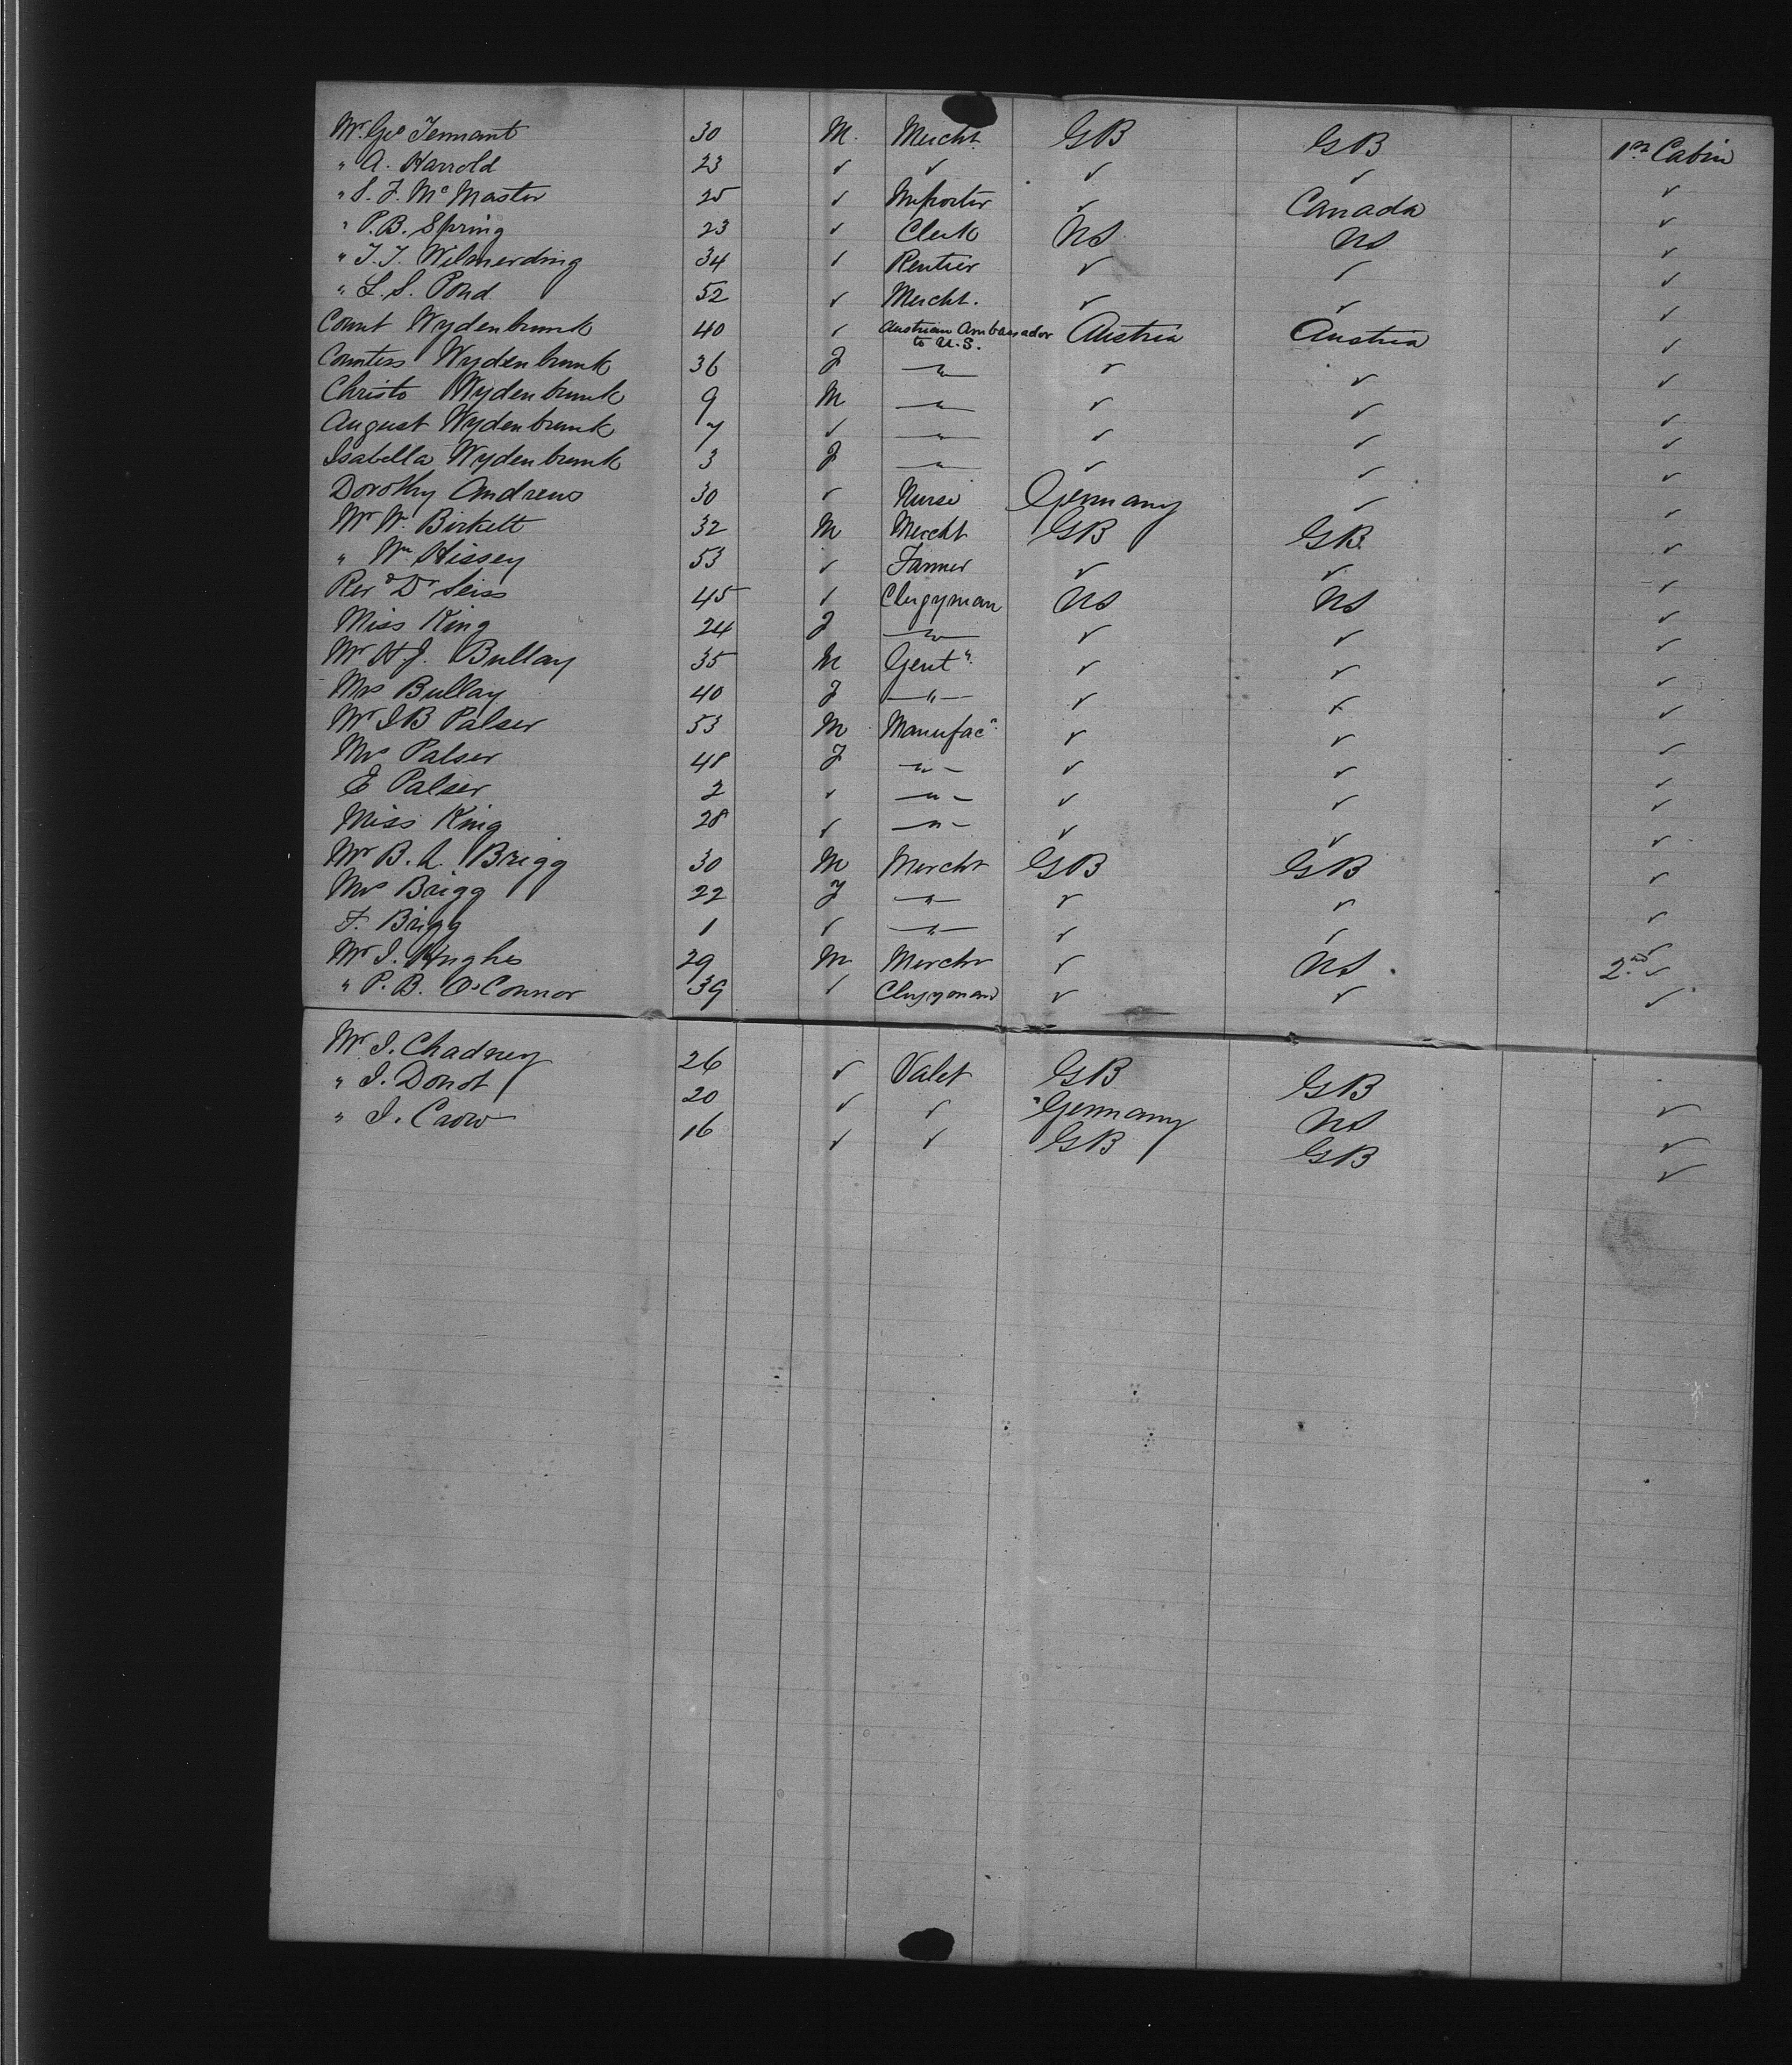 Mr. Geo Tennant 30 M. Mercht. GB GB 1st Cabin
" A. Harrold 23 ✓ ✓ ✓ ✓ ✓
" S. F. McMaster 25 ✓ Importer ✓ Canada ✓
" P.B. Spring 23 ✓ Clerk US US ✓
" T.T. Wilmerding 34 ✓ Rentier ✓ ✓ ✓
" L.S. Pond 52 ✓ Mercht. ✓ ✓ ✓
Count Wydenbrunk 40 ✓ Austrian Ambassador Austria Austria ✓
to U.S.
Countess Wydenbrunk 36 F " ✓ ✓ ✓
Christo Wydenbrunk 9 M " ✓ ✓ ✓
August Wydenbrunk 7 ✓ " ✓ ✓ ✓
Isabella Wydenbrunk 3 F " ✓ ✓ ✓
Dorothy Andrews 30 ✓ Nurse Germany ✓ ✓
Mr W. Birkett 32 M Mercht GB GB ✓
" Wm Hissey 53 ✓ Farmer ✓ ✓ ✓
Revd Dr Seiss 45 ✓ Clergyman US US ✓
Miss King 24 F " ✓ ✓ ✓
Mr H J. Bullay 35 M Gentn. ✓ ✓ ✓
Mrs Bullay 40 F " ✓ ✓ ✓
Mr I B Palser 53 M Manufacr ✓ ✓ ✓
Mrs Palser 48 F " ✓ ✓ ✓
E Palser 2 ✓ " ✓ ✓ ✓
Miss King 28 ✓ " ✓ ✓ ✓
Mr B. A. Brigg 30 M Mercht GB GB ✓
Mrs Brigg 22 F " ✓ ✓ ✓
F. Brigg 1 ✓ " ✓ ✓ ✓
Mr I. Hughes 29 M Mercht ✓ US. 2nd ✓
" P. B. O'Connor 39 ✓ Clergyman ✓ ✓ ✓
Mr I. Chadney 26 ✓ Valet GB GB ✓
" I. Donot 20 ✓ ✓ Germany US ✓
" I. Crow 16 ✓ ✓ GB GB ✓